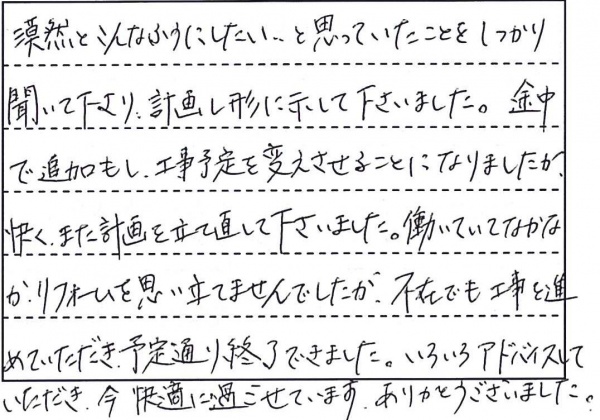 漠然とこんなふうにしたい‥と思っていたことをしっかり
聞いて下さり、計画し形に示して下さいました。途中
で追加もし、工事予定を変えさせることになりましたが、
快く、また計画を立て直して下さいました。働いていてなかな
か、リフォームを思い立てませんでしたが、不在でも工事を進
めていただき、予定通り終了できました。いろいろアドバイスして
いただき、今快適に過ごせています、ありがとうございました。